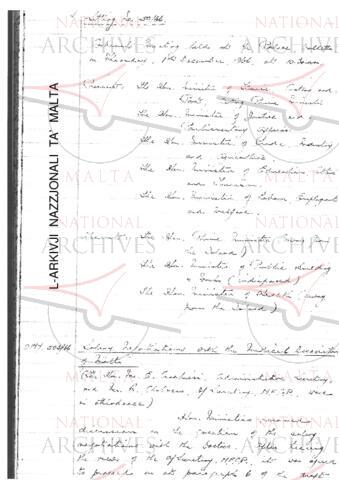 Meeting No. 50/66.
Cabinet Meeting held at the Palace, Valletta
on Thursday, 1st December, 1966, at 10.30 am
Present: The Hon. Minister of Finance, Customs and
Port, Acting Prime Minister
The Hon. Minister of Justice and
Parliamentary Affairs.
The Hon. Minister of Trade, Industry
and Agriculture
The Hon. Minister of Education, Culture
and Tourism
The Hon. Minister of Labour, Employment
and Welfare.
Absent: The Hon. Prime Minister (away from
the Island)
The Hon. Minister of Public Building
& Works (indisposed)
The Hon. Minister of Health (away
from the Island)
Salary Negotiations with the Medical Association
of Malta
(The Hon. Mr. B. administrative Secretary,
and Mr. R. Chalmers, O/Secretary, M.F.C.P. were
in attendance)
Hon. Ministers resumed
discussion on the question of the salary
negotiations with the doctors. After hearing
the views of the O/Secretary M.F.C.P., it was agreed
to proceed as at paragraph 6 of the
L-ARKIVJI NAZZJONALI TA' MALTA
NATIONAL
ARCHIVES
MALTA